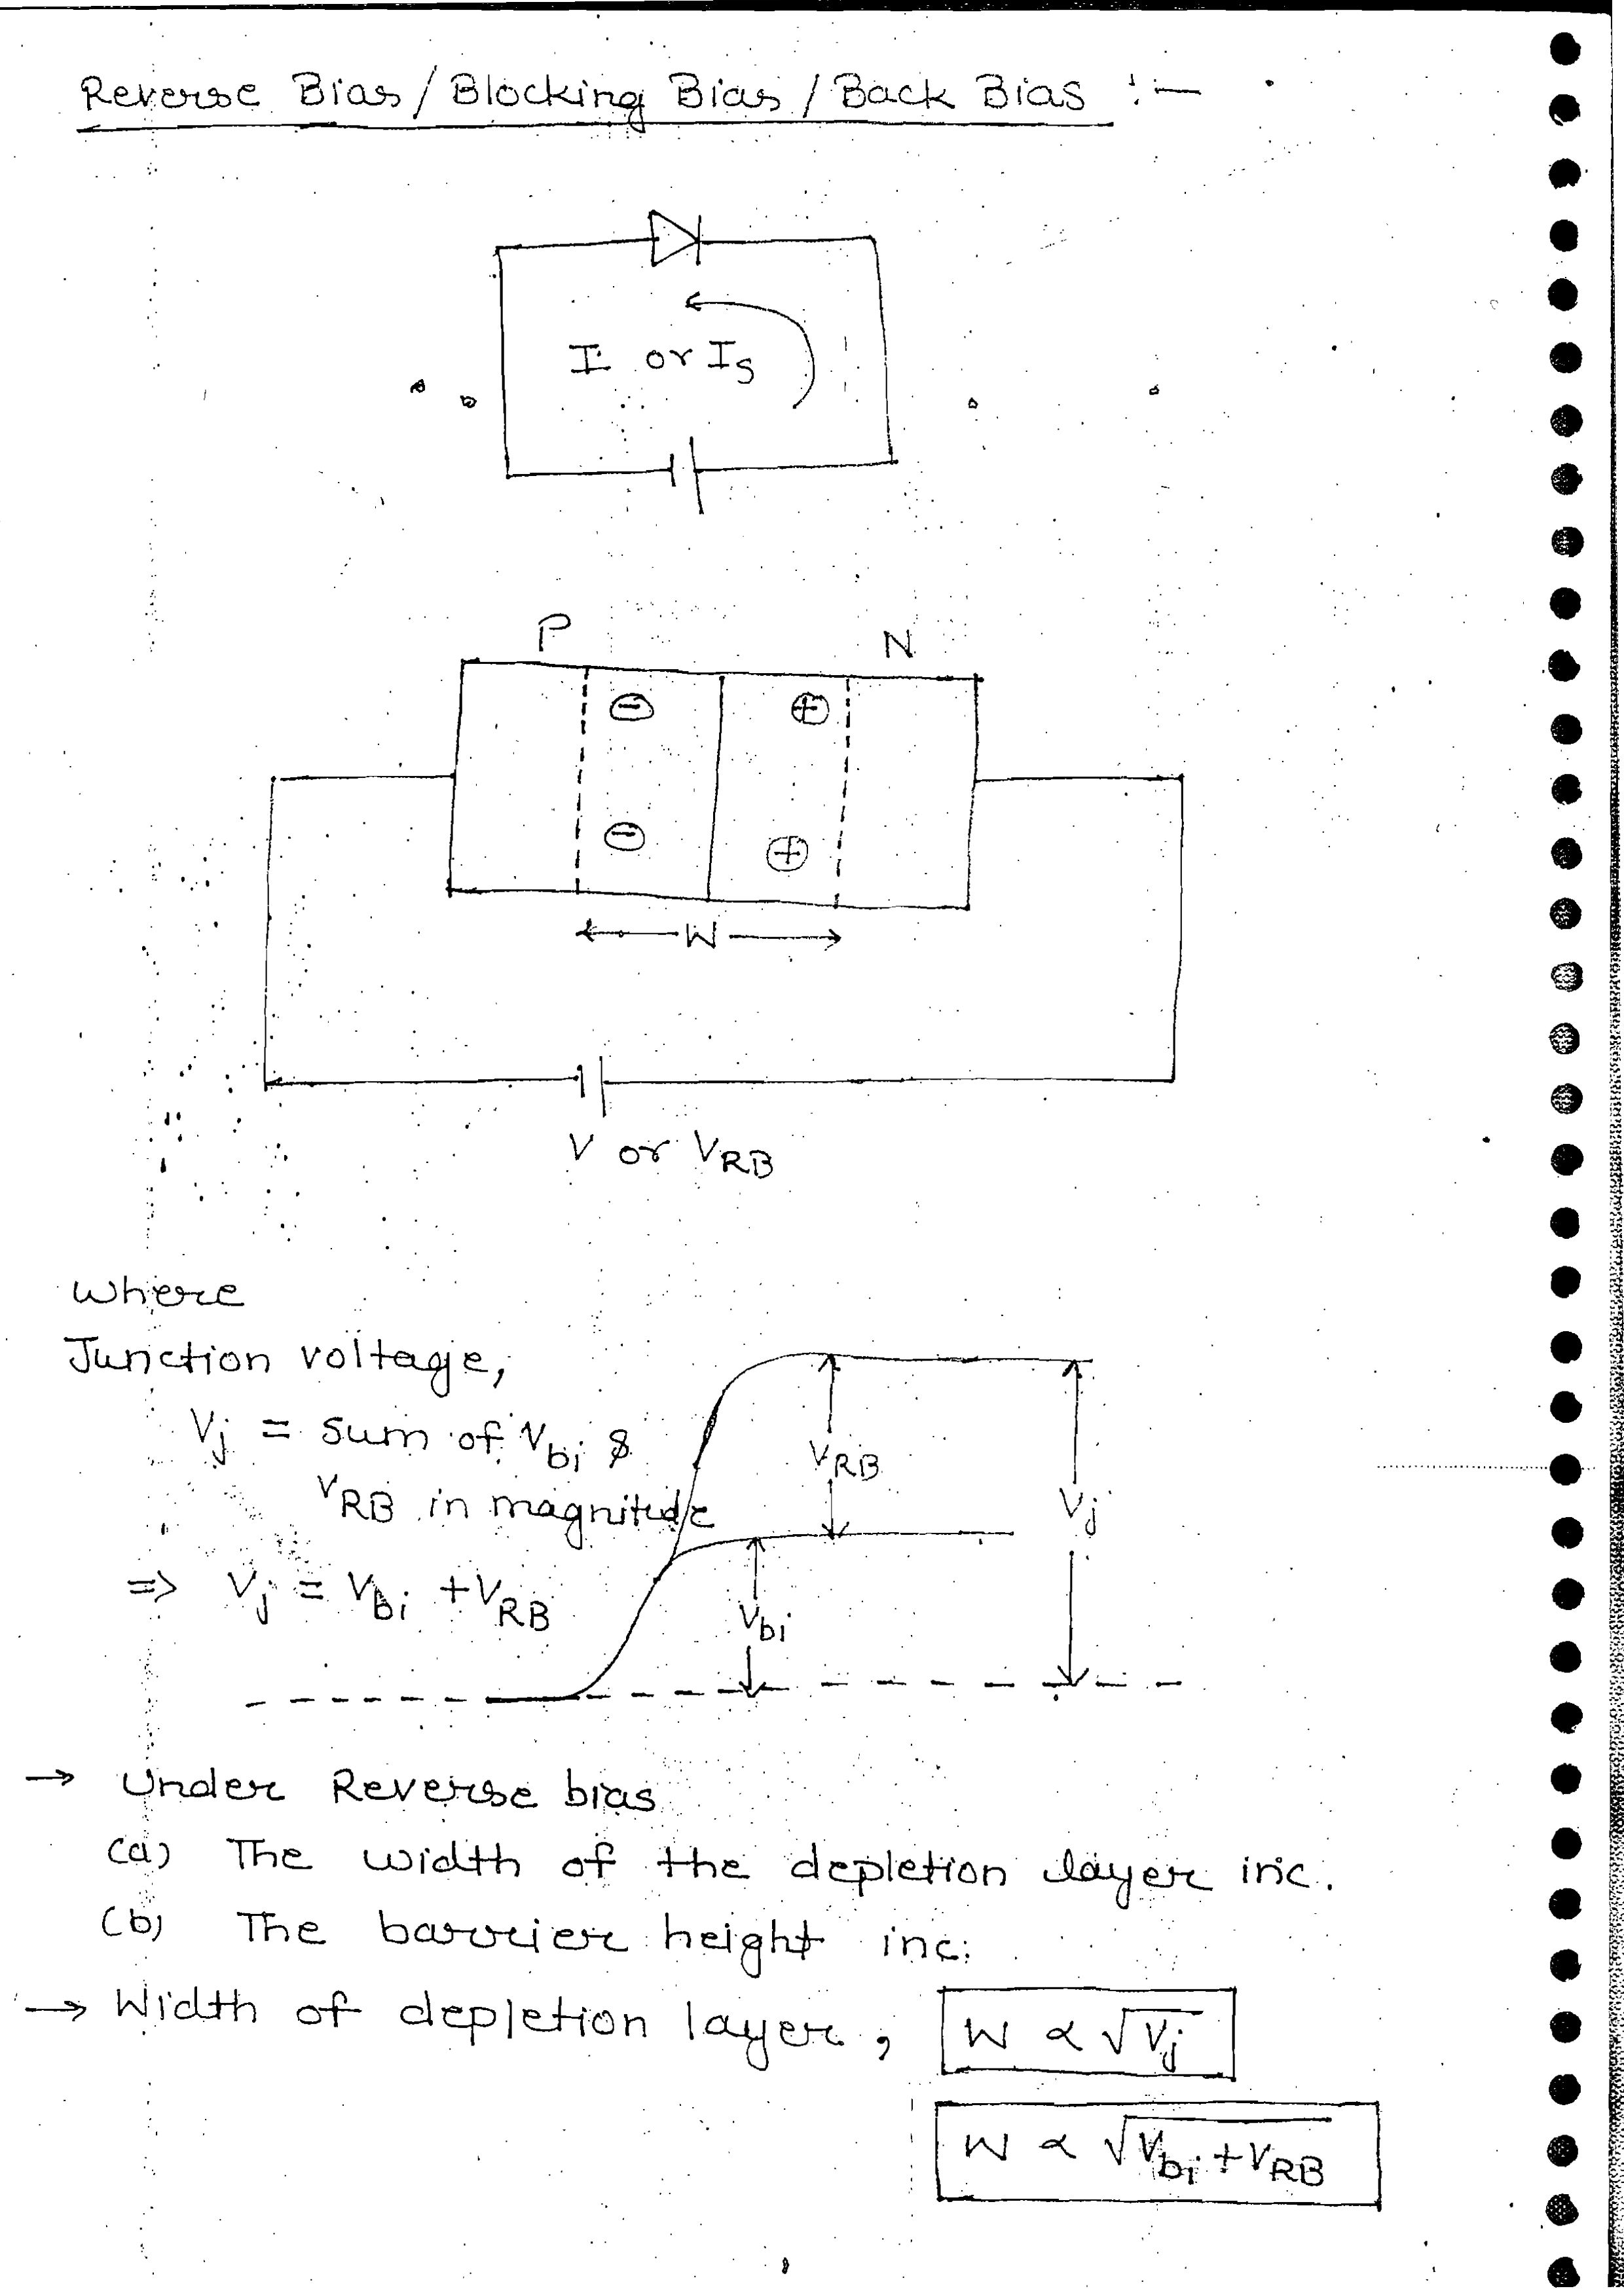 Reverse Bias / Blocking Bias / Back Bias :-
I or IS
P N
⊖ ⊕
⊖ ⊕
W
V or VRB
Where
Junction voltage,
Vj = sum of Vbi &
VRB in magnitude
VRB
Vj
⇒ Vj = Vbi + VRB
Vbi
→ Under Reverse bias
(a) The width of the depletion layer inc.
(b) The barrier height inc.
→ Width of depletion layer, W ∝ √Vj
W ∝ √Vbi+VRB